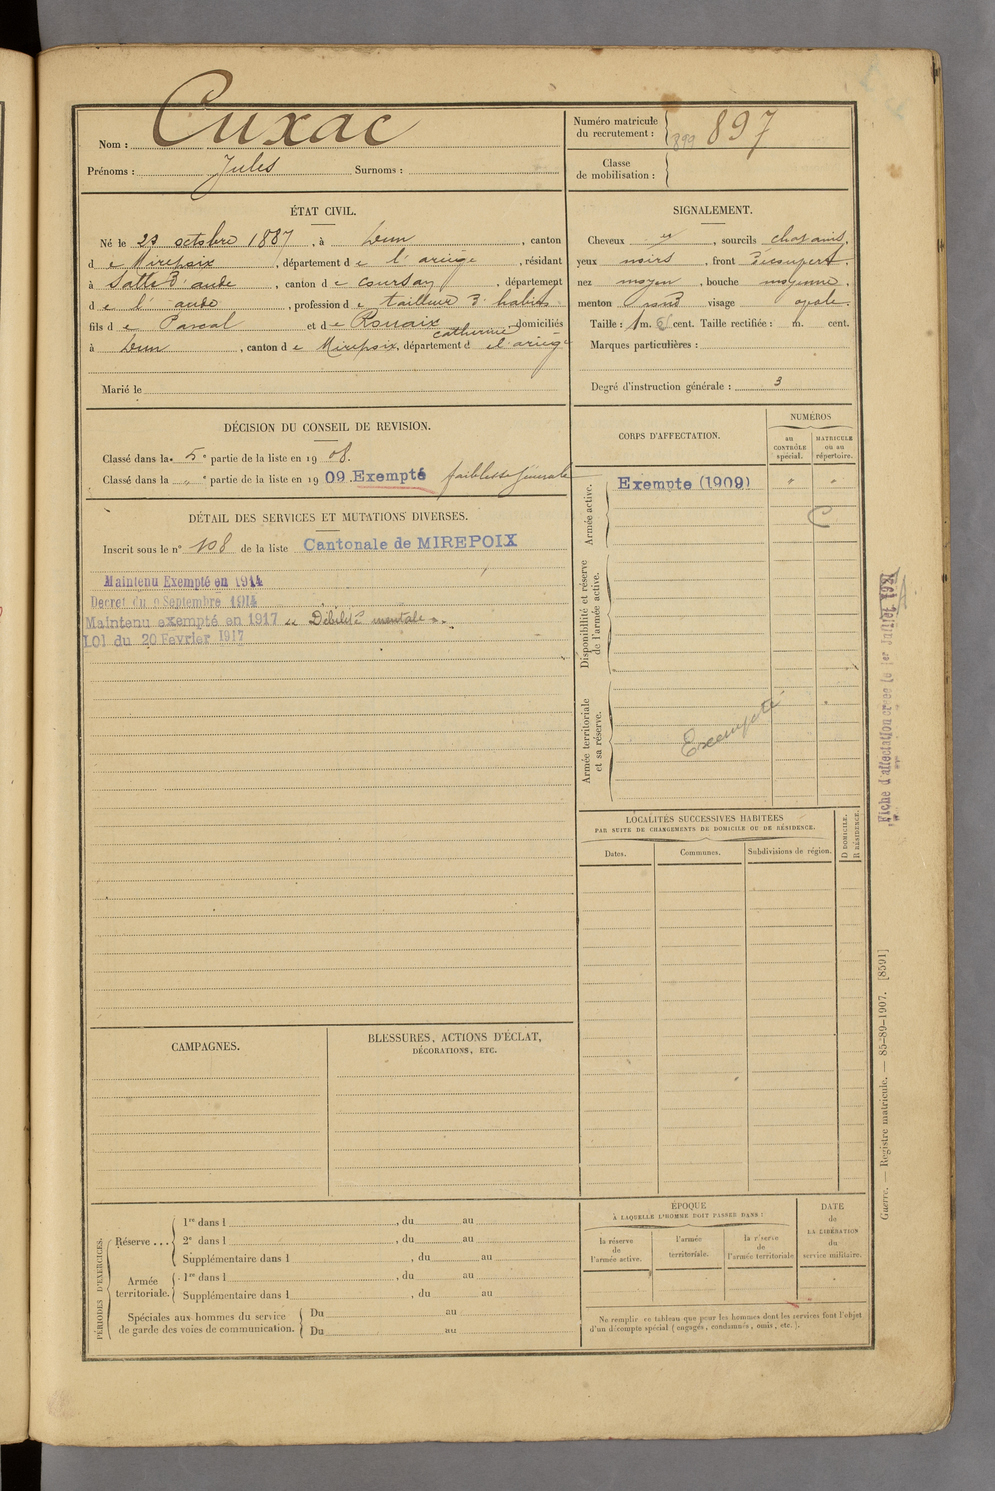 Cuxac
Nom :
Prénoms : Jules Surnoms :
Numéro matricule
du recrutement : 899 897
Classe
de mobilisation :
ÉTAT CIVIL.
Né le 23 octobre 1887, à Dun, canton
de Mirepoix, département de l'ariège, résidant
à Salles d'aude, canton de coursan, département
de l'aude, profession de tailleur d'habits
fils de Pascal et de Rouaix catherine domiciliés
à Dun, canton de Mirepoix, département de l'ariège
Marié le
SIGNALEMENT.
Cheveux et, sourcils chatains,
yeux noirs, front découvert,
nez moyen, bouche moyenne,
menton rond visage ovale.
Taille : 1 m. cent. Taille rectifiée : m. cent.
Marques particulières :
Degré d'instruction générale : 3
DÉCISION DU CONSEIL DE REVISION.
Classé dans la 5e partie de la liste en 1908.
Classé dans la " e partie de la liste en 1909 Exempté faiblesse générale
DÉTAIL DES SERVICES ET MUTATIONS DIVERSES.
Inscrit sous le n° 108 de la liste Cantonale de MIREPOIX
Maintenu Exempté en 1914
Decret du 9 Septembre 1914
Maintenu exempté en 1917 « Débilité mentale »
LOI du 20 Fevrier 1917
CORPS D'AFFECTATION.
NUMÉROS
au
CONTRÔLE
spécial.
MATRICULE
ou au
répertoire.
Armée active.
Exempte (1909) " "
Disponibilité et réserve
de l'armée active.
Armée territoriale
et sa réserve.
Exempté
LOCALITÉS SUCCESSIVES HABITÉES
PAR SUITE DE CHANGEMENTS DE DOMICILE OU DE RÉSIDENCE.
Dates.
Communes.
Subdivisions de région.
D DOMICILE.
R RÉSIDENCE.
CAMPAGNES.
BLESSURES, ACTIONS D'ÉCLAT,
DÉCORATIONS, ETC.
PÉRIODES D'EXERCICES.
Réserve ...
1re dans l , du au
2e dans l , du au
Supplémentaire dans l , du au
Armée
territoriale.
1re dans l , du au
Supplémentaire dans l , du au
Spéciales aux hommes du service
de garde des voies de communication.
Du au
Du au
ÉPOQUE
À LAQUELLE L'HOMME DOIT PASSER DANS :
la réserve
de
l'armée active.
l'armée
territoriale.
la réserve
de
l'armée territoriale
DATE
de
LA LIBÉRATION
du
service militaire.
Ne remplir ce tableau que pour les hommes dont les services font l'objet
d'un décompte spécial (engagés, condamnés, omis, etc.).
Fiche d'affectation créée le 1er Juillet 1921
Guerre. — Registre matricule. — 85-89-1907. [8591]